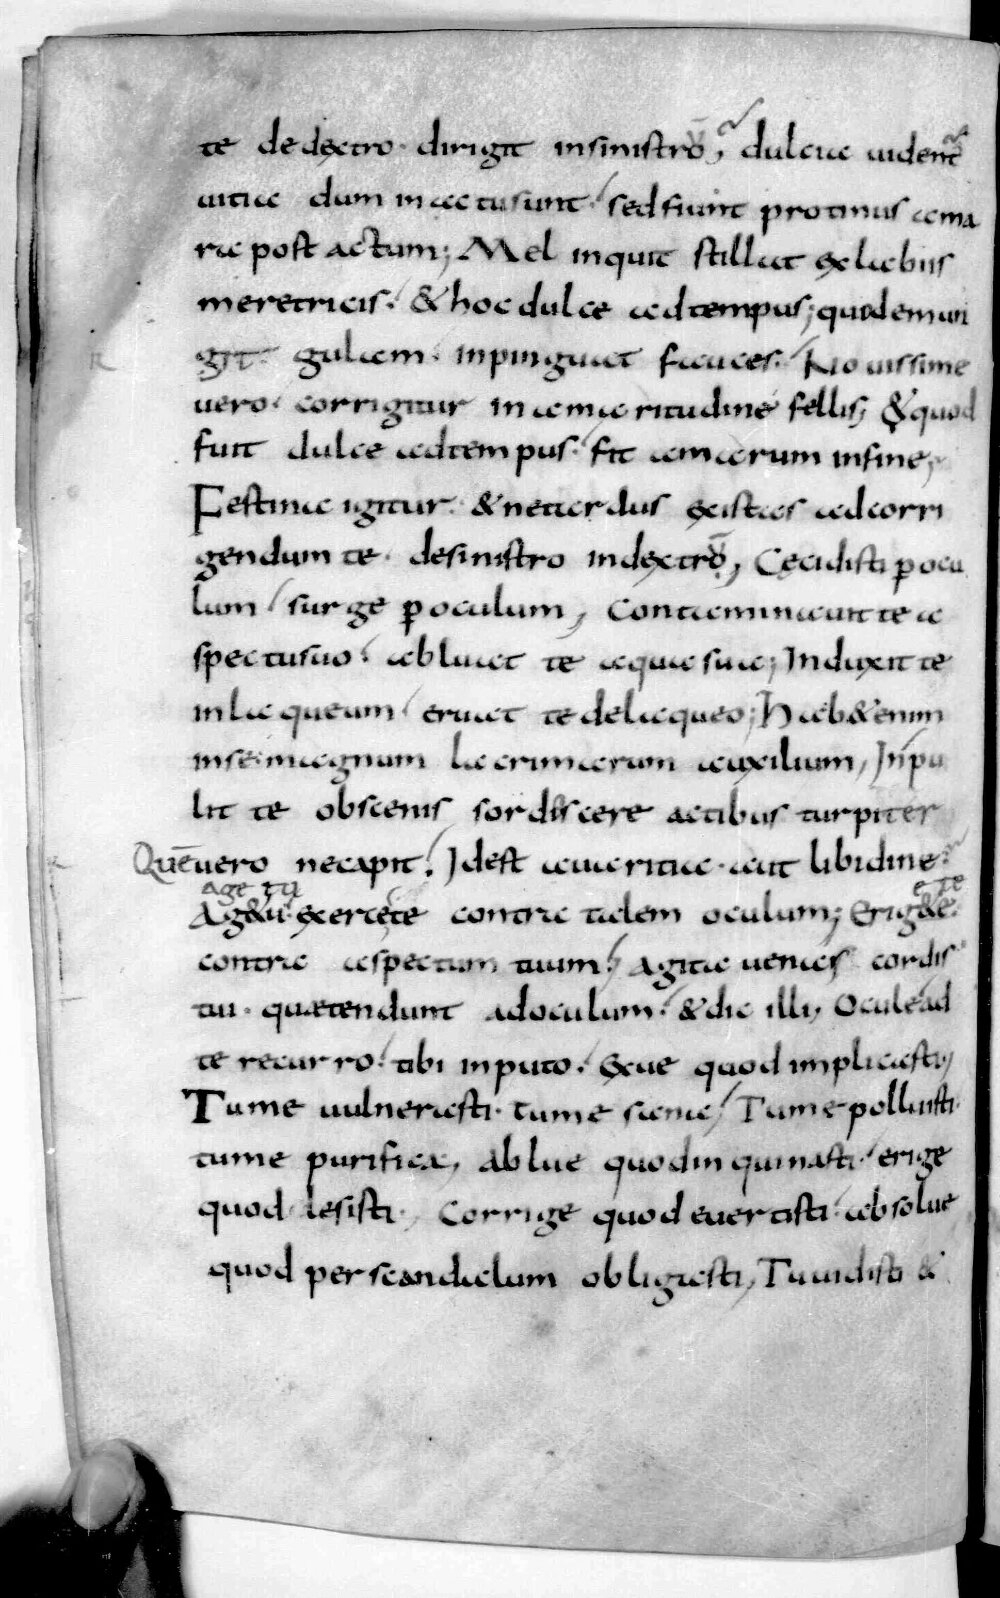 te de dextro · dirigit insinistrō, dulcia uident̄
uitia dum in actu sunt · sed fiunt protinus ama
ra post actum; Mel inquit stillat ex labiis
meretricis · & hoc dulce ad tempus; quod emun
git · gulam · inpinguat fauces · Nouissime
uero · corrigitur in amaritudine fellis, & quod
fuit dulce ad tempus · fit amarum in fine,
Festina igitur · & ne tardus existas ad corri
gendum te · de sinistro in dextrō, Cęcidisti p ocu
lum / surge p oculum, Contaminauit te a
spectu suo · abluat te aqua sua; Induxit te
in laqueum / eruat te de laqueo; Hab& enim
in se · magnum lacrimarum auxilium, Inpu
lit te obscenis sordiscere actibus turpiter
Quē uero necapit · Idest auaritia · aut libidine
age tu e te
Ag&u · exercete contra talem oculum; Erig&e ·
contra aspectum tuum · Agita uenas cordis
tui · quæ tendunt ad oculum · & dic illi, Ocule ad
te recurro · tibi inputo · Exue quod implicasti,
Tu me uulnerasti · tu me sana / Tu me polluisti ·
tu me purifica, Ablue quod inquinasti · erige
quod lesisti ·, Corrige quod euertisti · absolue
quod per scandalum obligasti, Tu uidisti &